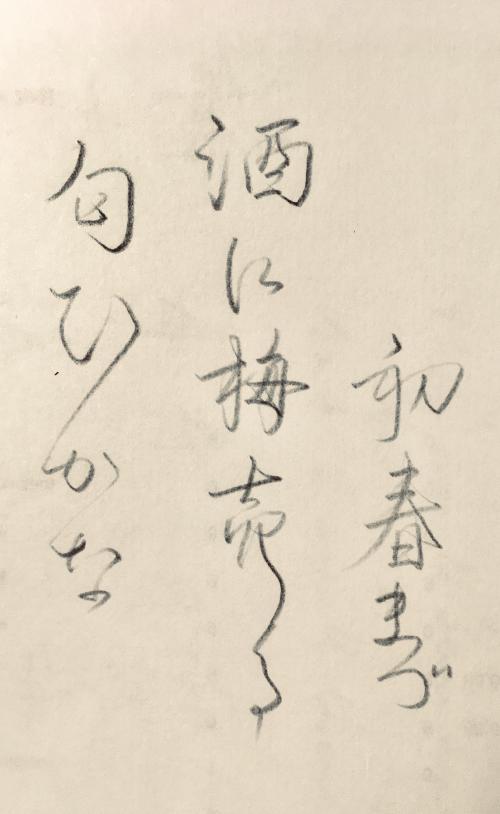 初春まづ
酒に梅売る
匂ひかな